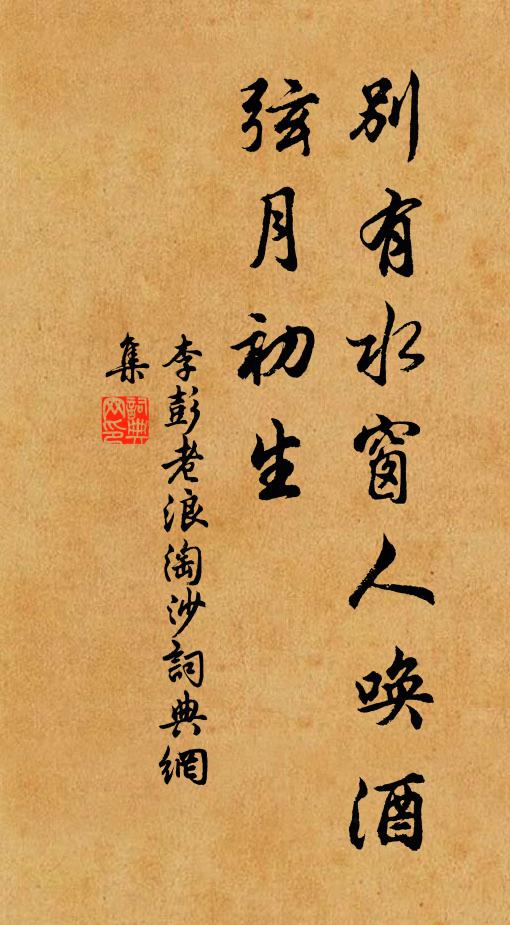 別有水窗人喚酒
弦月初生
李彭老浪淘沙詞典網
集
詞典
网印